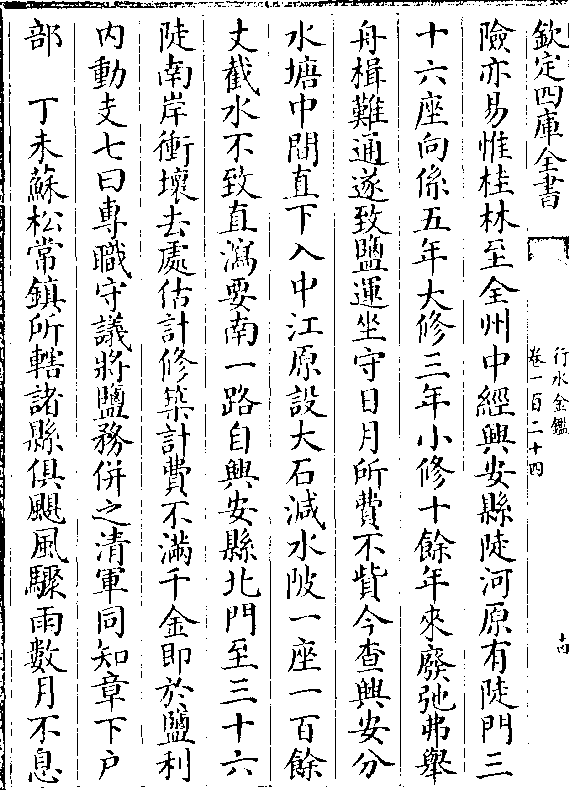 欽定四庫全書
行水金鑑
卷一百二十四
十四
險亦易惟桂林至全州中經興安縣陡河原有陡門三
十六座向係五年大修三年小修十餘年來廢弛弗舉
舟楫難通遂致鹽運坐守日月所費不貲今查興安分
水塘中間直下入中江原設大石減水陂一座一百餘
丈截水不致直瀉要南一路自興安縣北門至三十六
陡南岸衝壞去處估計修築計費不滿千金即於鹽利
内動支七曰專職守議將鹽務併之清軍同知章下户
部　丁未蘇松常鎮所轄諸縣俱颶風驟雨數月不息